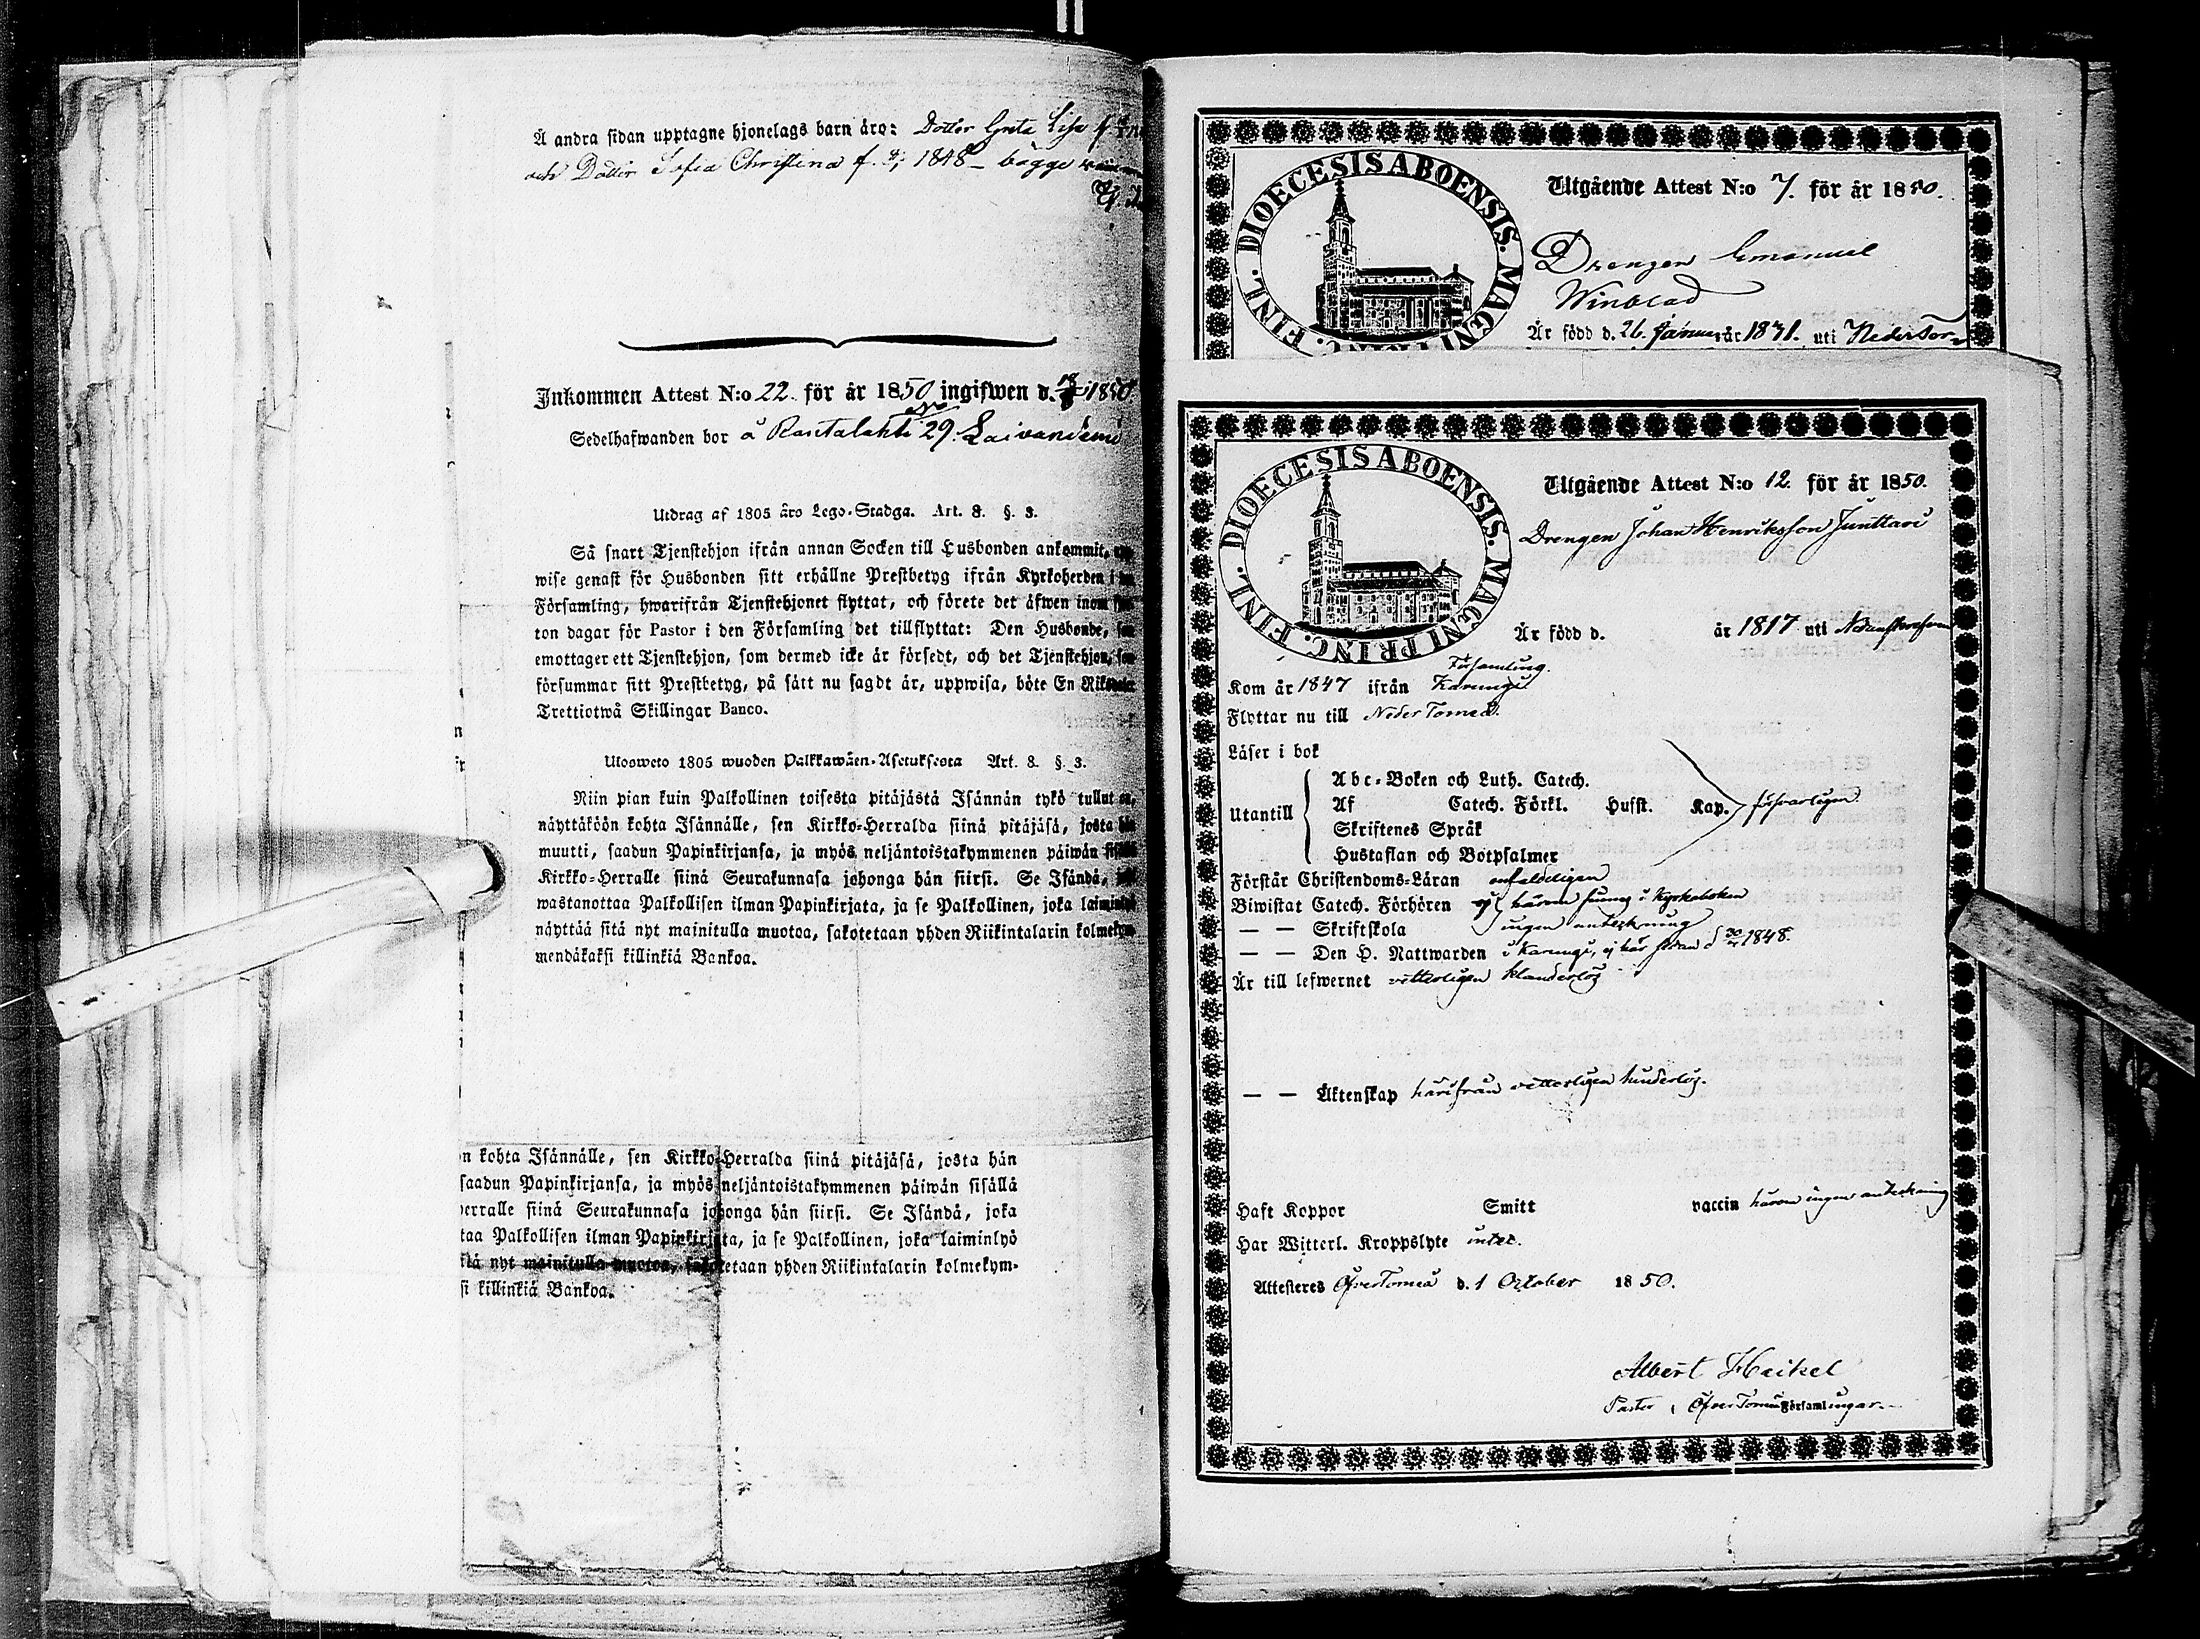 Å andra sidan upptagne hjonelags barn äro: Dotter Greta Lisa f.
och Dotter Sofia Christina f. 1848 – bägge
Inkommen Attest N:o 22. för år 1850 ingifwen d. 1850
Sedelhafwanden bor å Rantalahti No 29. Laivaniemi
Utdrag af 1805 års Lego-Stadga. Art. 8. §. 3.
Så snart Tjenstehjon ifrån annan Socken till Husbonden ankommit,
wise genast för Husbonden sitt erhållne Prestbetyg ifrån Kyrkoherden i
Församling, hwarifrån Tjenstehjonet flyttat, och förete det äfwen inom
ton dagar för Pastor i den Församling det tillflyttat: Den Husbonde,
emottager ett Tjenstehjon, som dermed icke är försedt, och det Tjenstehjon,
försummar sitt Prestbetyg, på sätt nu sagdt är, uppwisa, böte En Riksdaler
Trettiotwå Skillingar Banco.
Ulosweto 1805 wuoden Palkkawäen-Asetuksesta Art. 8. §. 3.
Niin pian kuin Palkollinen toisesta pitäjästä Isännän tykö tullut on,
näyttäköön kohta Isännälle, sen Kirkko-Herralda siinä pitäjäsä, josta hän
muutti, saadun Papinkirjansa, ja myös neljäntoistakymmenen päiwän sisällä
Kirkko-Herralle siinä Seurakunnasa johonga hän siirsi. Se Isändä,
wastanottaa Palkollisen ilman Papinkirjata, ja se Palkollinen, joka laiminlyö
näyttää sitä nyt mainitulla muotoa, sakotetaan yhden Riikintalarin kolmekym
mendäkaksi killinkiä Bankoa.
n kohta Isännälle, sen Kirkko-Herralda siinä pitäjäsä, josta hän
saadun Papinkirjansa, ja myös neljäntoistakymmenen päiwän sisällä
erralle siinä Seurakunnasa johonga hän siirsi. Se Isändä, joka
taa Palkollisen ilman Papinkirjata, ja se Palkollinen, joka laiminlyö
itä nyt mainitulla muotoa, sakotetaan yhden Riikintalarin kolmekym-
si killinkiä Bankoa.
DIOECESIS ABOENSIS. MAGNI PRINC. FINL.
Utgående Attest N:o 7. för år 1850.
Drengen Emanuel
Winblad
Är född d. 26 Januari år 1831. uti Nedertor-
DIOECESIS ABOENSIS. MAGNI PRINC. FINL.
Utgående Attest N:o 12. för år 1850.
Drengen Johan Henriksson Junttari
Är född d. år 1817 uti
Kom år 1847 ifrån Karungi Församling.
Flyttar nu till Neder Torneå.
Läser i bok
Utantill
Abc-Boken och Luth. Catech.
Af Catech. Förkl. Husst. Kap. försvarligen
Skriftenes Språk
Hustaflan och Botpsalmer
Förstår Christendoms-Läran enfaldeligen
Biwistat Catech. Förhören ej härom finnes i Kyrkoboken
— — Skriftskola ingen anteckning
— — Den H. Nattwarden i Karungi, ej här sedan d 1848.
Är till lefwernet vetterligen klanderlös
— — Äktenskap härifrån vetterligen hinderlös.
Haft Koppor Smitt vaccin härom ingen anteckning
Har Witterl. Kroppslyte intet.
Attesteres ÖfverTorneå d. 1 October 1850.
Albert Heikel
Pastor i ÖfverTorneå Församlingar.